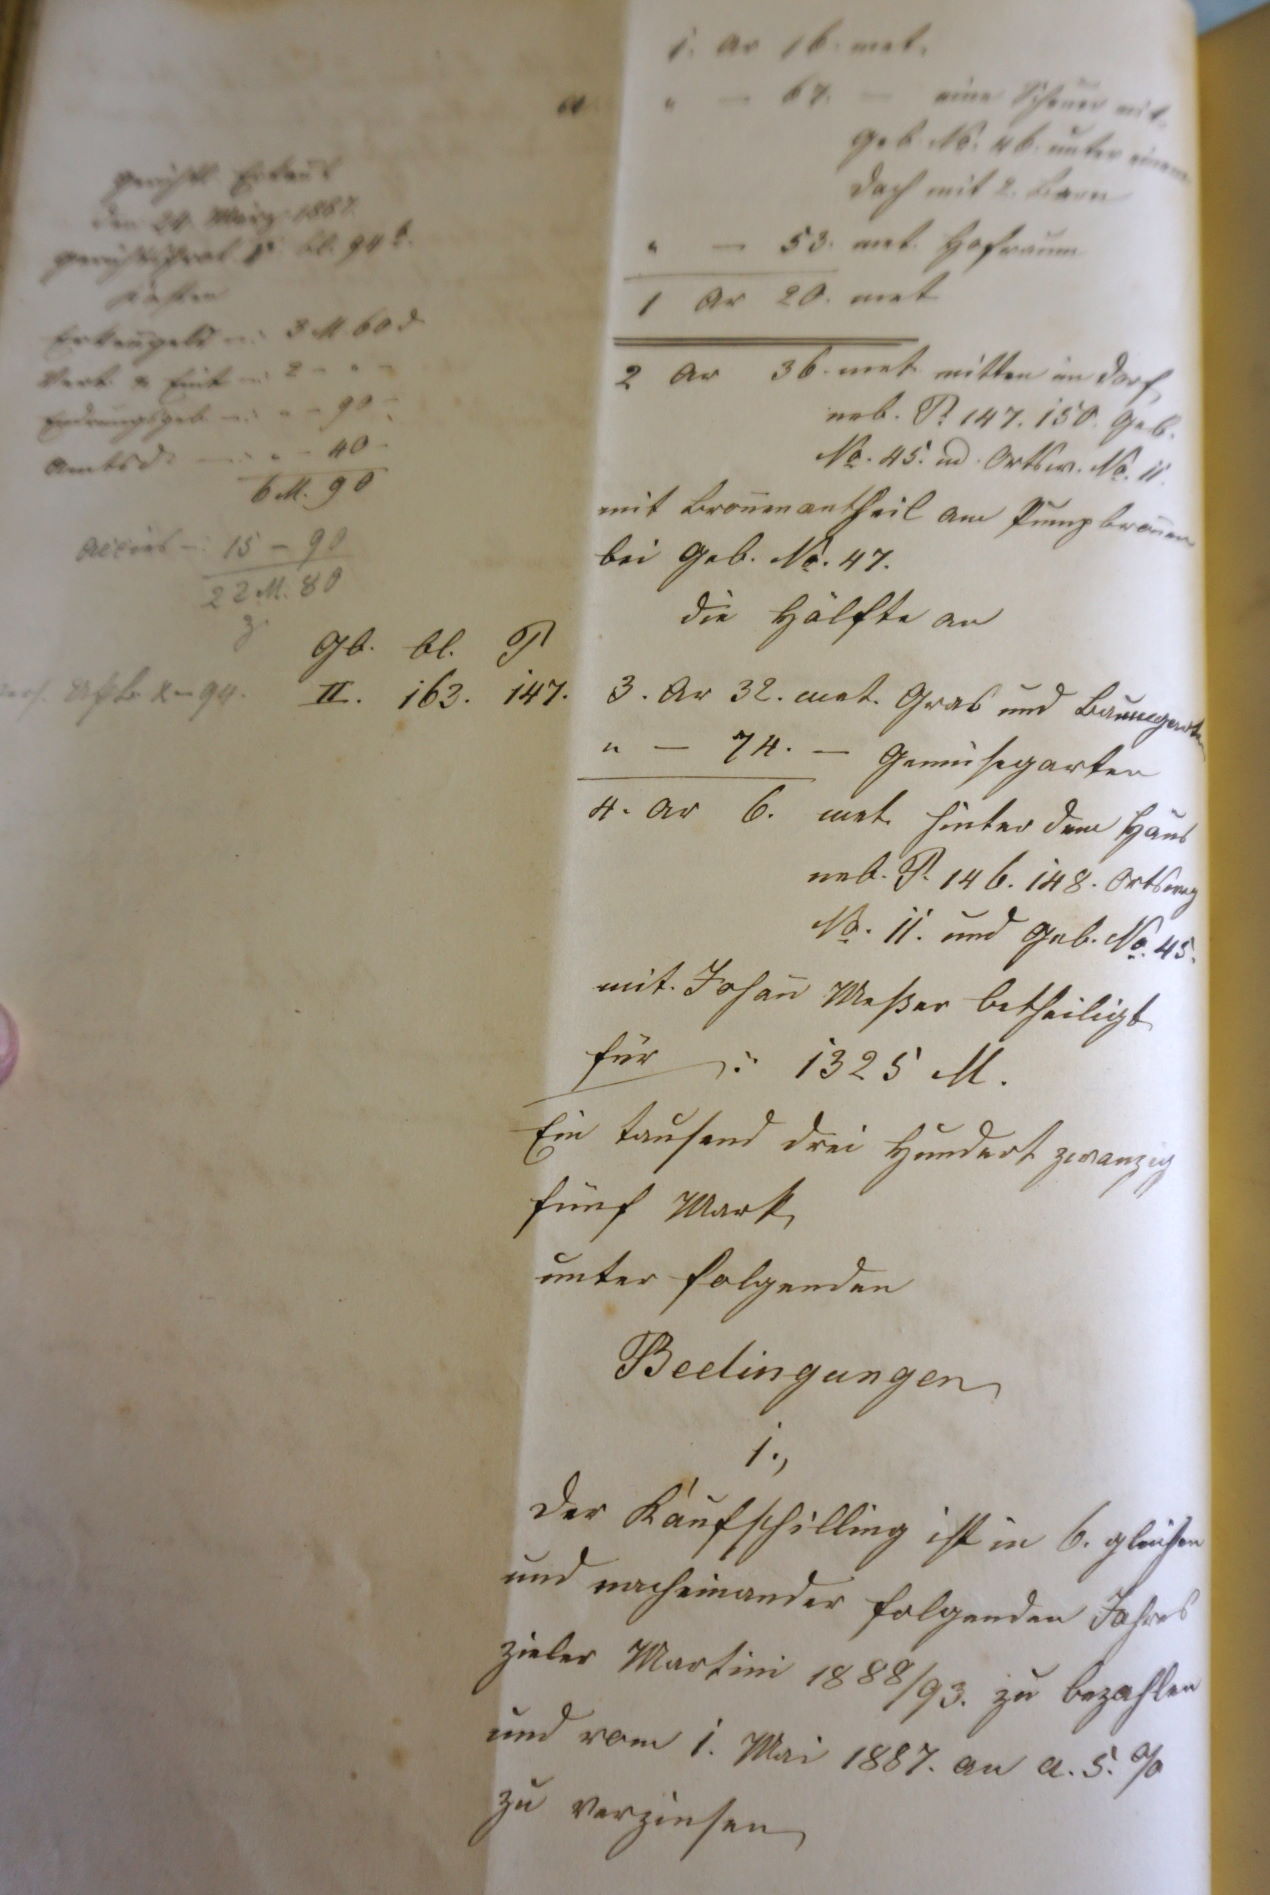 1. Ar 16. met.
a. " — 67. — eine Scheuer mit
Geb. No. 46. unter einem
Dach mit 2. Barn
" — 53. met. Hofraum
1 Ar 20. met
2 Ar 36. met. mitten im Dorf,
neb. P. 147. 150. Geb.
No. 45. ud. Ortsw. No. 11.
mit Bron̄enantheil am Pumpbron̄en
bei Geb. No. 47.
die Hälfte an
3. Ar 32. met. Gras und Baumgarten
" — 74. — Gemüsegarten
4. Ar 6. met. hinter dem Haus
neb. P. 146. 148. Ortsweg
No. 11. und Geb. No. 45.
mit Johan̄ Meßer betheiligt
für —: 1325 M.
Ein tausend drei Hundert zwanzig
fünf Mark,
unter folgenden
Bedingungen
1.,
Der Kaufschilling ist in 6. gleichen
und nacheinander folgenden Jahres
zieler Martini 1888/93. zu bezahlen
und vom 1. Mai 1887. an a. 5. %
zu verzinsen
gerichtl. Erkan̄t
den 24. März 1887.
bl. 94 b.
Kosten
Erken̄geld —: 3 M. 60 d
2 — " —
" — 90 —
Amtsd. —: " — 40 —
6 M. 90
Accies —: 15 — 90
22 M. 80
Gb. bl. P
II. 163. 147.
94.